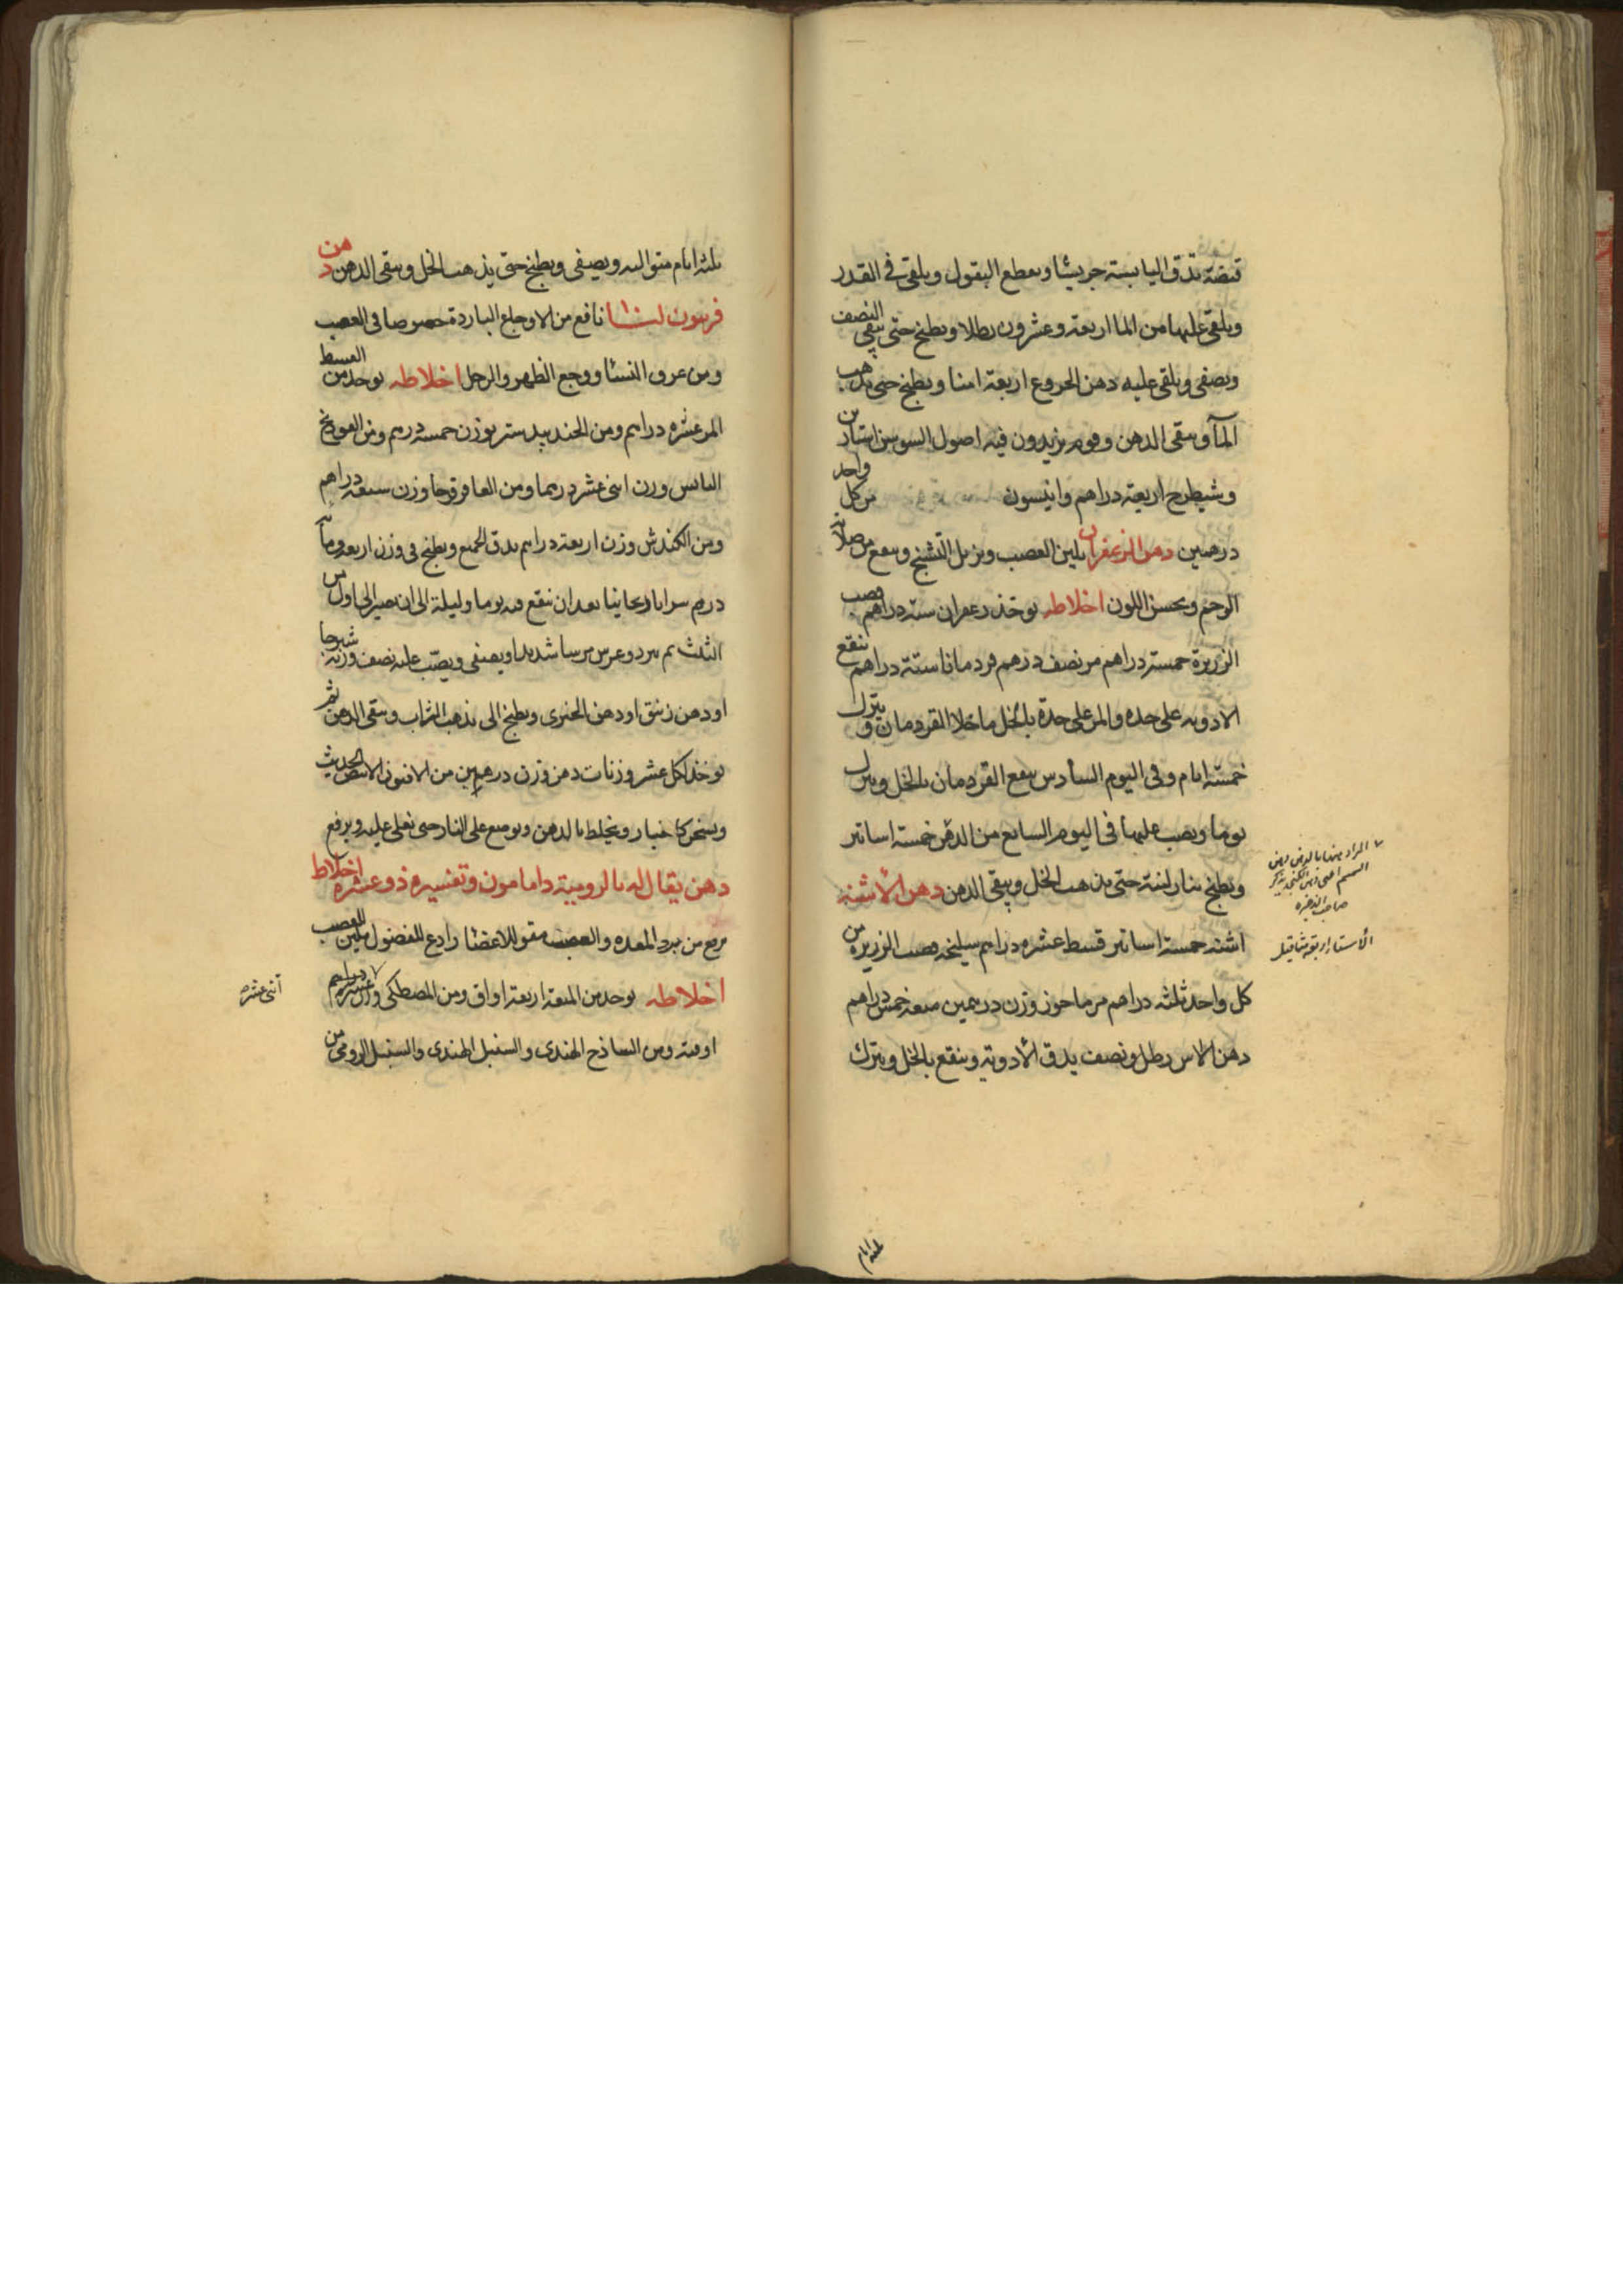 قبضة تدق اليابسة جريشا ويقطع البقول ويلقى في القدر
ويلقى عليها من الما اربعة وعشرون رطلا ويطبخ حتى يبقى النصف
ويصفى ويلقى عليه دهن الخروع اربعة امنا ويطبخ حتى يذهب
المآ ويبقى الدهن وقوم يزيدون فيه اصول السوسن استارين
وشيطرح اربعة دراهم وانيسون من كل واحد
درهمين دهن الزعفران يلين العصب ويزيل التشنج وينفع من صلابة
الرحم ويحسن اللون اخلاطه يوخذ زعفران ستة دراهم قصب
الزريرة خمسة دراهم مر نصف درهم قردمانا ستة دراهم ينقع
الادويه على حده والمر على حدة بالخل ما خلا القردمان ويترك
خمسة ايام وفى اليوم السادس ينقع القردمان بالخل ويترك
يوما ويصب عليها فى اليوم السابع من الدهن خمسة اساتير
ويطبخ بنار لينة حتى يذهب الخل ويبقى الدهن دهن الاشنه
اشنه خمسة اساتير قسط عشره دراهم سليخه قصب الزريرة من
كل واحد ثلثه دراهم مرماحوز وزن درهمين ميعه خمس دراهم
دهن الاس رطل ونصف يدق الأدويه وينقع بالخل ويترك
المراد هنا بالدهن دهن
السمسم
صاحب الذخيره
الأستار اربعة مثاقيل
ثلثه ايام
ثلثه ايام متواليه ويصفى ويطبخ حتى يذهب الخل ويبقى الدهن دهن
فربيون لنا نافع من الاوجاع الباردة خصوصا فى العصب
ومن عرق النسا ووجع الظهر والرجل اخلاطه يوخذ من القسط
المر عشره دراهم ومن الجندبيدستر بوزن خمسة درهم ومن الفودنج
اليابس وزن اثنى عشر درهما ومن العاقرقرحا وزن سبعه دراهم
ومن الكندش وزن اربعة دراهم يدق الجميع ويطبخ فى وزن اربعمائة
درهم شرابا ريحانيا بعد ان ينقع فيه يوما وليلة الى ان يصير الى اول من
الثلث ثم يبرد ويمرس مرسا شديدا ويصفى ويصب عليه نصف وزنه شيرجا
او دهن زنبق او دهن الخيرى ويطبخ الى يذهب الشراب ويبقى الدهن ثم
يوخذ لكل عشر وزنات دهن وزن درهمين من الافيون الابيض الحديث
ويسحق كالغبار ويخلط بالدهن ويوضع على النار حتى يغلى عليه ويرفع
دهن يقال له بالرومية دامامون وتفسيره ذو عشرة اخلاط
ينفع من برد المعده والعصب مقو للاعضا رادع للفضول ملين للعصب
اخلاطه يوخذ من الميعه اربعة اواق ومن المصطكى وزن عشره دراهم
اوقيه ومن الساذج الهندى والسنبل الهندى والسنبل الرومى من
اثنى عشره